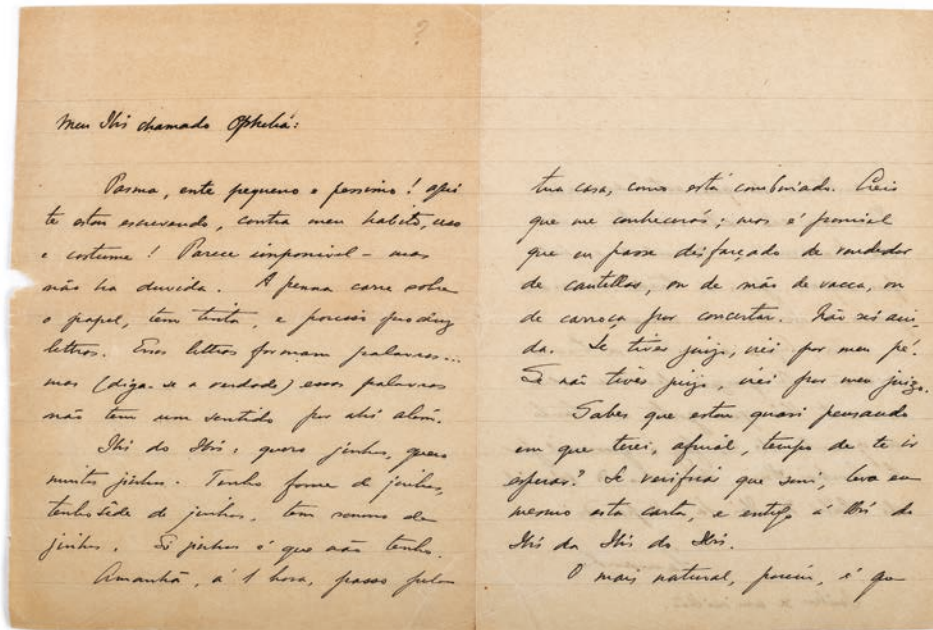 ?
Meu Ibis chamado Ophelia:
Pasma, ente pequeno e pessimo! aqui
te estou escrevendo, contra meu habito, uso
e costume! Parece impossivel – mas
não ha duvida. A penna corre sobre
o papel, tem tinta, e por isso produz
lettras. Essas lettras formam palavras...
mas (diga-se a verdade) essas palavras
não tem um sentido por ahi alem.
Ibis do Ibis: quero jinhos, quero
muitos jinhos. Tenho fome de jinhos,
tenho sêde de jinhos, tem somno de
jinhos. Só jinhos é que não tenho.
Amanhã, á 1 hora, passo pela
tua casa, como está combinado. Creio
que me conhecerás; mas é possivel
que eu passe disfarçado de vendedor
de cautellas, ou de mão de vacca, ou
de carroça por concertar. Não sei ain-
da. Se tiver juizo, irei por meu pé.
Se não tiver juizo, irei por meu juizo.
Sabes que estou quasi pensando
em que terei, afinal, tempo de te ir
esperar? Se verificar que sim, levo eu
mesmo esta carta, e entrego á Ibis do
Ibis da Ibis do Ibis.
O mais natural, porém, é que